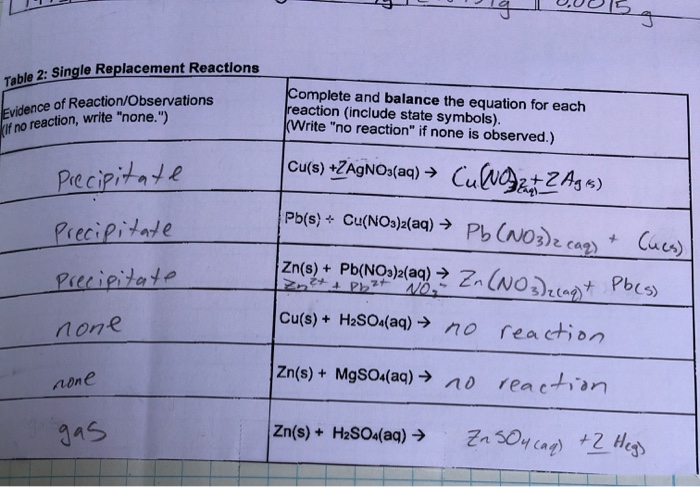 0.0015 g
Table 2: Single Replacement Reactions
Evidence of Reaction/Observations
(If no reaction, write "none.")
Complete and balance the equation for each
reaction (include state symbols).
(Write "no reaction" if none is observed.)
Precipitate
Cu(s) +2AgNO₃(aq) → Cu(NO₃)₂(aq) + 2Ag(s)
Precipitate
Pb(s) + Cu(NO₃)₂(aq) → Pb(NO₃)₂(aq) + Cu(s)
Precipitate
Zn(s) + Pb(NO₃)₂(aq) → Zn(NO₃)₂(aq) + Pb(s)
Zn²⁺ + Pb²⁺ NO₃⁻
none
Cu(s) + H₂SO₄(aq) → no reaction
none
Zn(s) + MgSO₄(aq) → no reaction
gas
Zn(s) + H₂SO₄(aq) → ZnSO₄(aq) + 2 H(g)